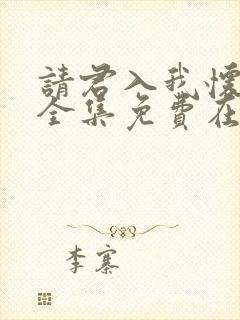 請君入我懷
全集免費在
李寨